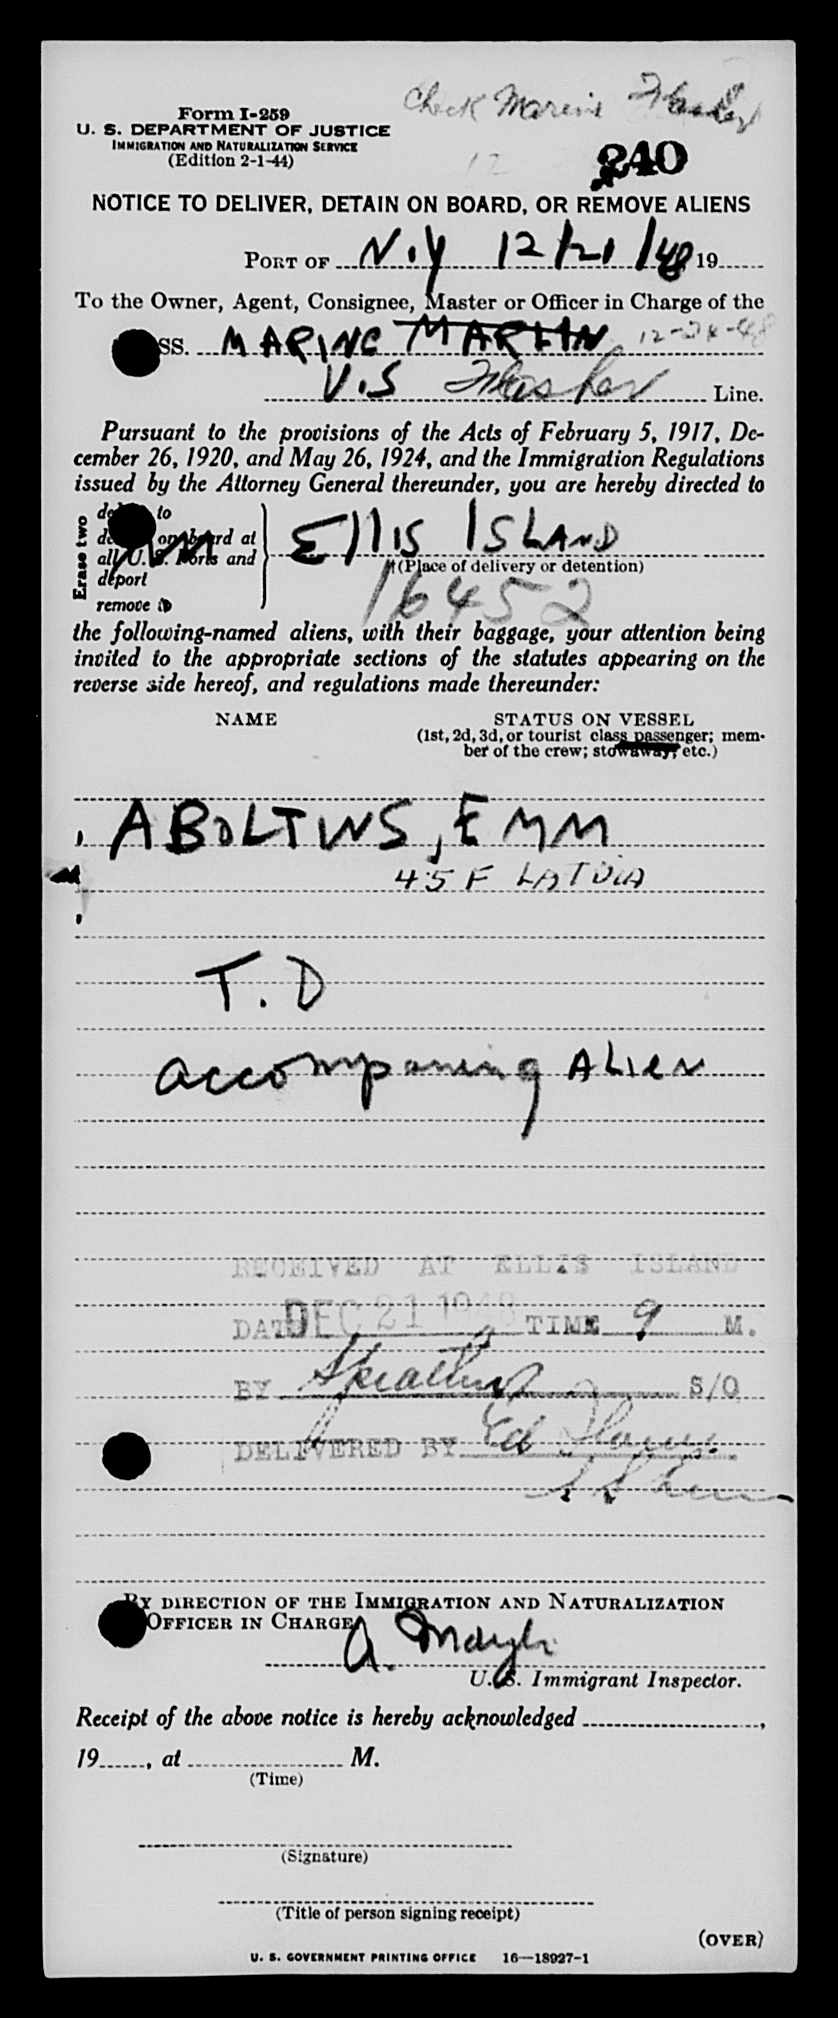 Check Marine Flasher
Form I-259
U. S. DEPARTMENT OF JUSTICE
IMMIGRATION AND NATURALIZATION SERVICE
(Edition 2-1-44)
12
240
NOTICE TO DELIVER, DETAIN ON BOARD, OR REMOVE ALIENS
PORT OF N.Y 12/21/48 19
To the Owner, Agent, Consignee, Master or Officer in Charge of the
SS. MARINE MARLIN 12-24-48
U.S Flasher Line.
Pursuant to the provisions of the Acts of February 5, 1917, De-
cember 26, 1920, and May 26, 1924, and the Immigration Regulations
issued by the Attorney General thereunder, you are hereby directed to
Erase two
to
on board at
all U. S. Ports and
deport
remove to
Ellis ISLAND
(Place of delivery or detention)
16452
the following-named aliens, with their baggage, your attention being
invited to the appropriate sections of the statutes appearing on the
reverse side hereof, and regulations made thereunder:
NAME
STATUS ON VESSEL
(1st, 2d, 3d, or tourist class passenger; mem-
ber of the crew; stowaway, etc.)
ABOLTINS, EMM
45 F LATVIA
T.D
accompaning Alien
RECEIVED AT ELLIS ISLAND
DATE DEC 21 1948 TIME 9 M.
BY S/O
DELIVERED BY Ed
BY DIRECTION OF THE IMMIGRATION AND NATURALIZATION
OFFICER IN CHARGE
A.
U. S. Immigrant Inspector.
Receipt of the above notice is hereby acknowledged ,
19 , at M.
(Time)
(Signature)
(Title of person signing receipt)
(OVER)
U. S. GOVERNMENT PRINTING OFFICE 16—18927-1